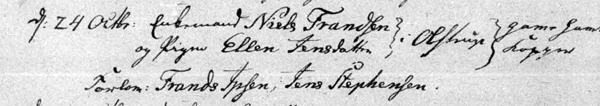 d: 24 Octbr: Enkemand Niels Frandsen
og Pigen Ellen Jensdatter } i Olstrup } gamle
Forlov: Frands Ipsen, Jens Stephensen.